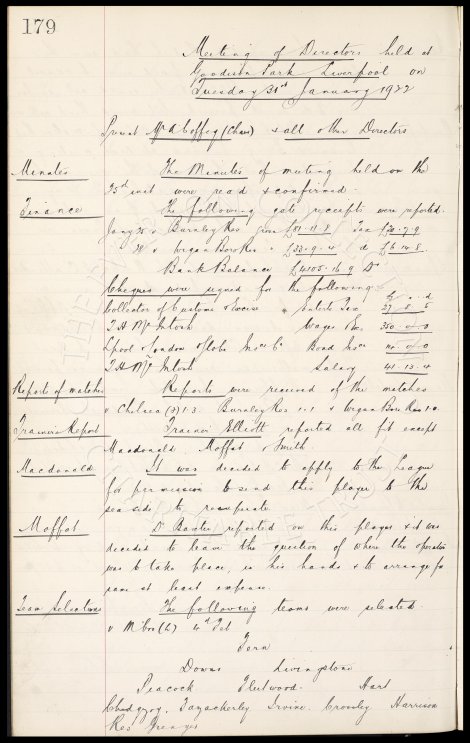 179
Meeting of Directors held at
Goodison Park Liverpool on
Tuesday 31st January 1922
Present Mr A Coffey (Chair) & all other Directors
Minutes The Minutes of meeting held on the
25th inst were read & confirmed.
Finance The following gate receipts were reported.
Jany v Burnley Res Tax
v Wigan Boro Res £33.9.4 do £6.14.8
Bank Balance £4105.16.9 Dr
Cheques were signed for the following £ s d
Collector of Customs & Excise Enterts Tax 27 8 5
T H McIntosh Wages &c 350 0 0
Lpool & London & Globe Insce Co Bond Insce
T H McIntosh Salary 41.13.4
Report of matches Reports were received of the matches
v Chelsea (3) 1.3 Burnley Res 1.1 v Wigan Boro Res 1.0
Trainers Report Trainer Elliott reported all fit except
Macdonald Moffat & Smith.
Macdonald It was decided to apply to the League
for permission to send this player to the
sea side to recuperate
Moffat Dr Baxter reported on this player & it was
decided to leave the question of where the operation
was to take place, in his hands & to arrange for
same at least expense.
Team Selections The following teams were selected
v M'bro (h) 4th Feb
Fern
Downs Livingstone
Peacock Fleetwood. Hart
Chedgzoy. Fazackerley Irvine. Crossley Harrison
Res Grenyer